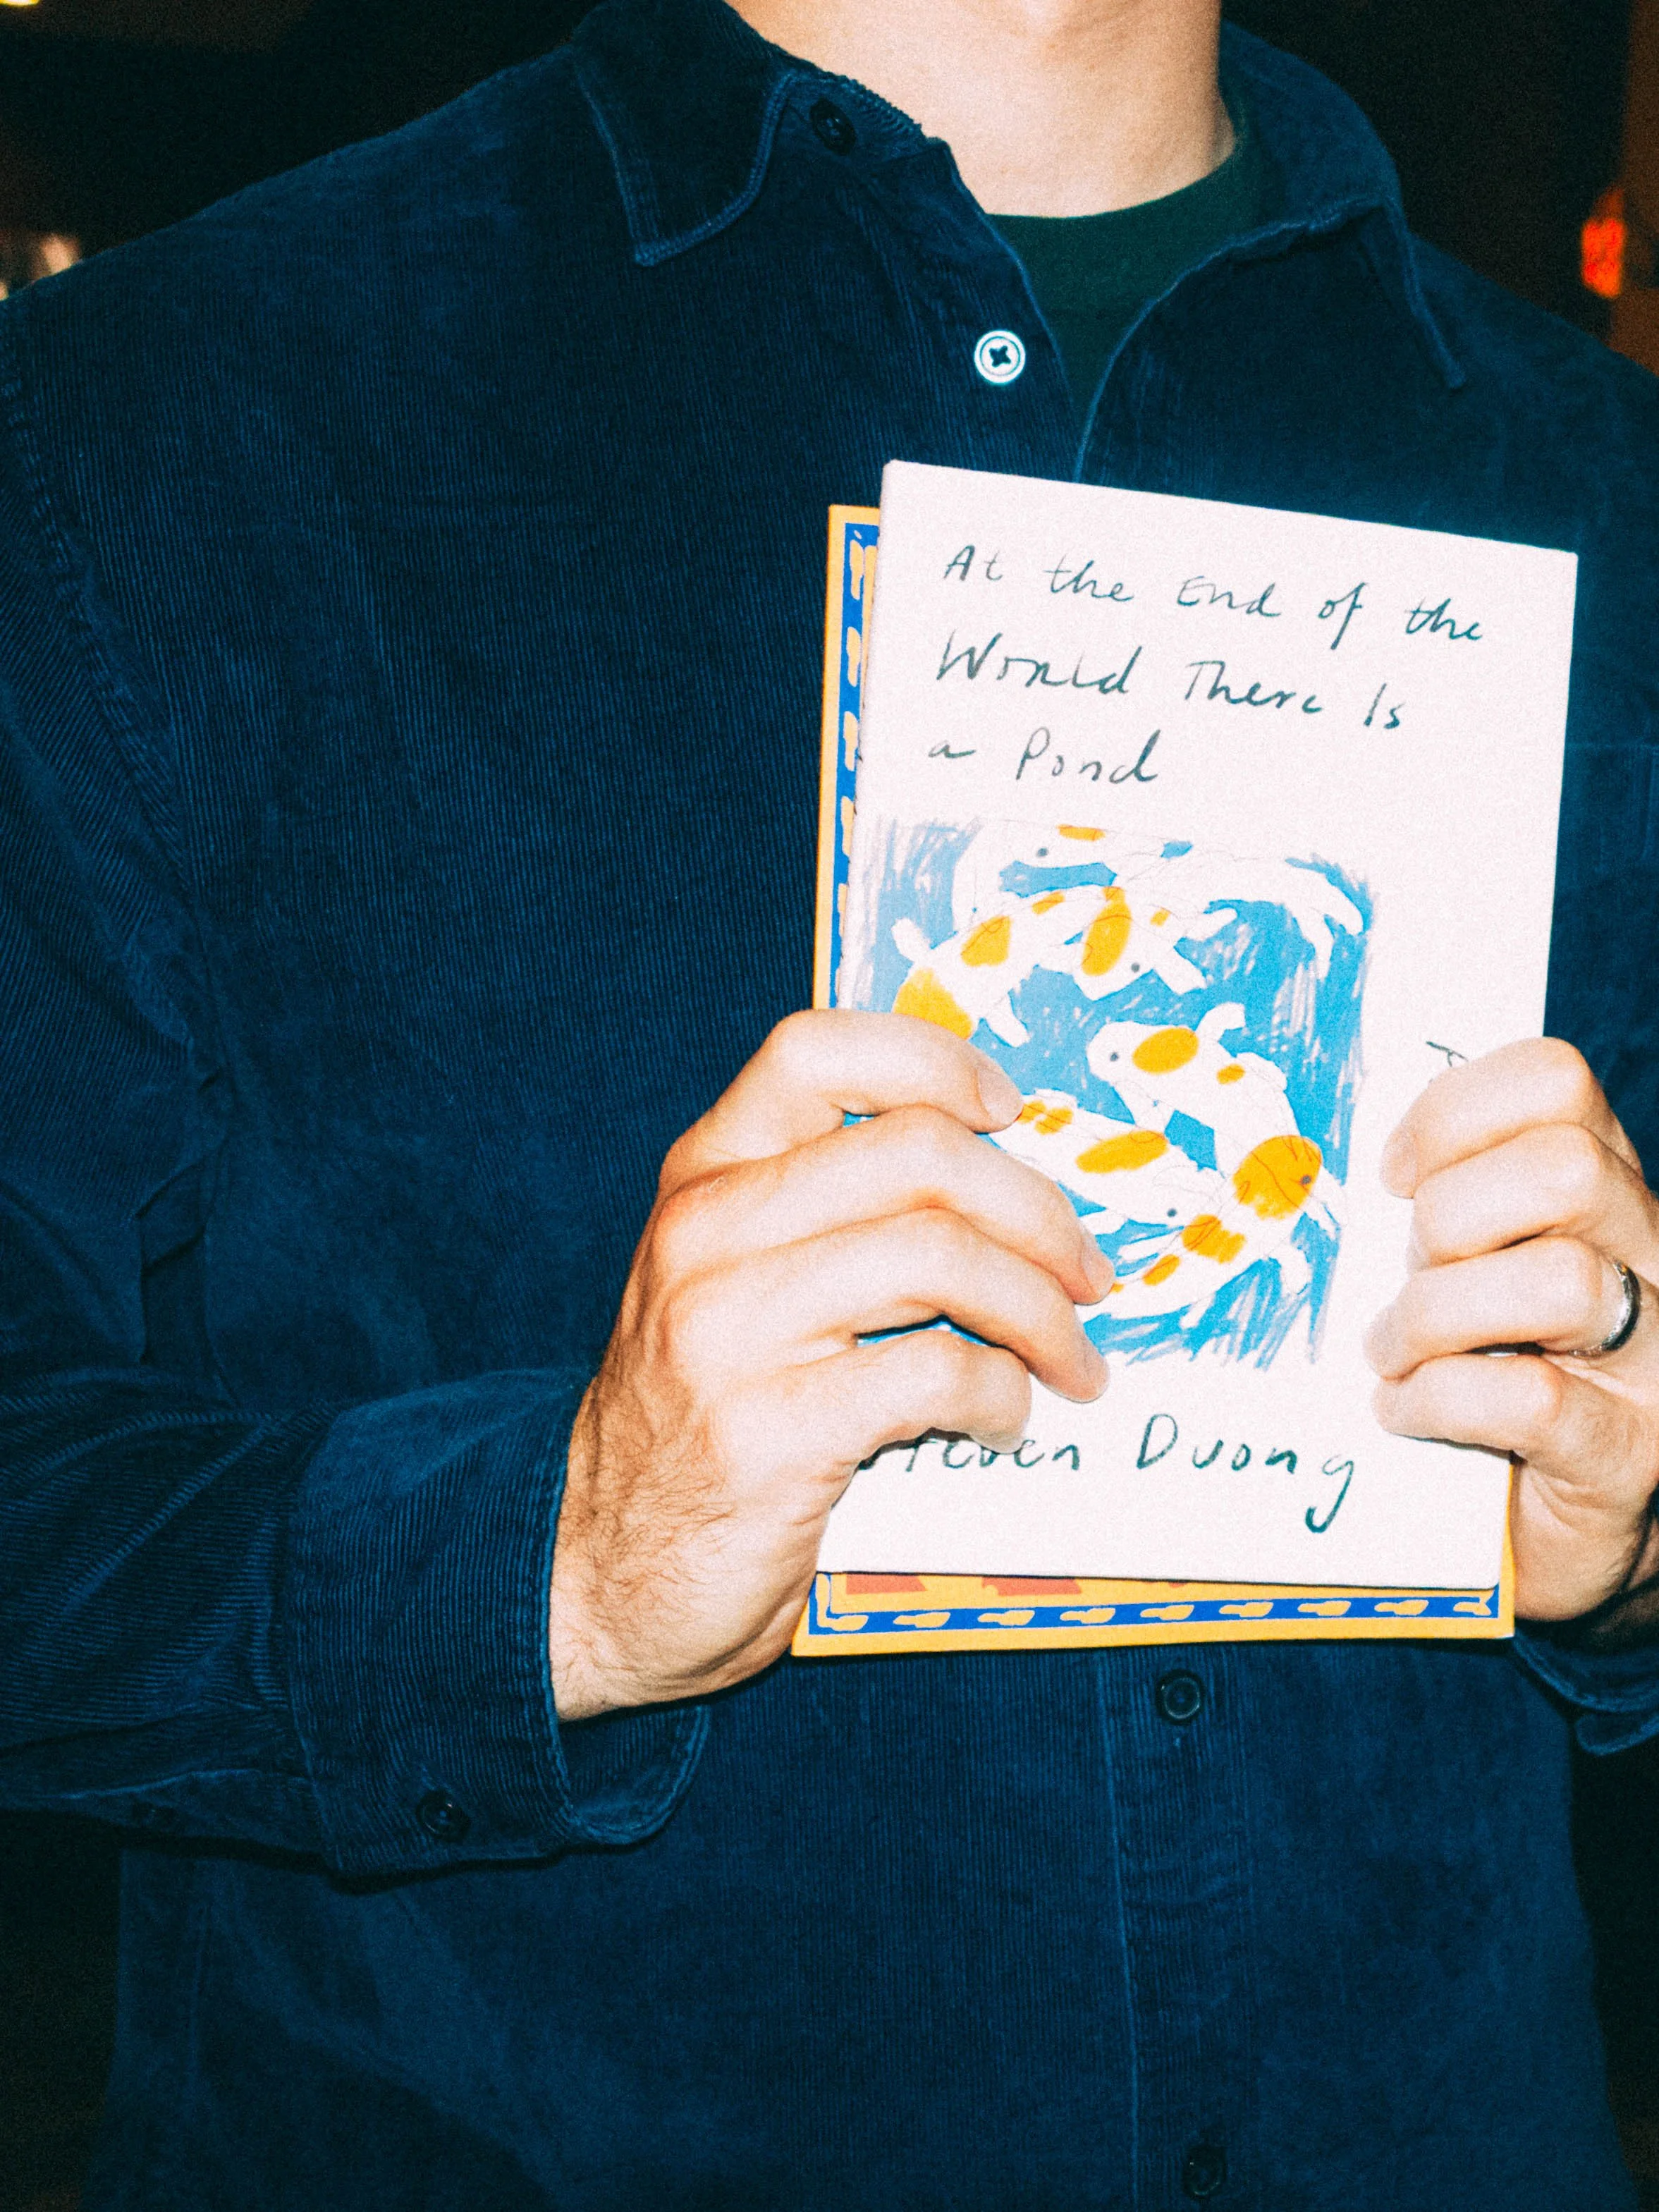 At the End of the
World There Is
a Pond
Steven Duong